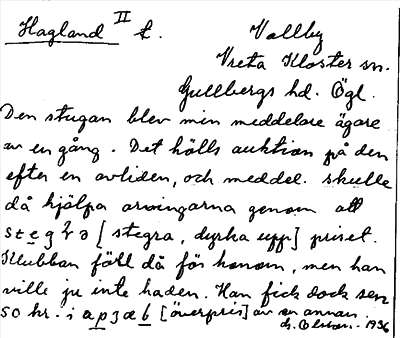 Hagland II t. Vallby
Vreta Kloster sn.
Gullbergs hd. Ögl.
Den stugan blev min meddelare ägare
av en gång. Det hölls auktion på den
efter en avliden, och meddel. skulle
då hjälpa arvingarna genom att
[stegra, dyrka upp] priset.
Klubban föll då för honom, men han
ville ju inte haden. Han fick dock sen
50 kr. i [överpris] av en annan.
Olson. 1936